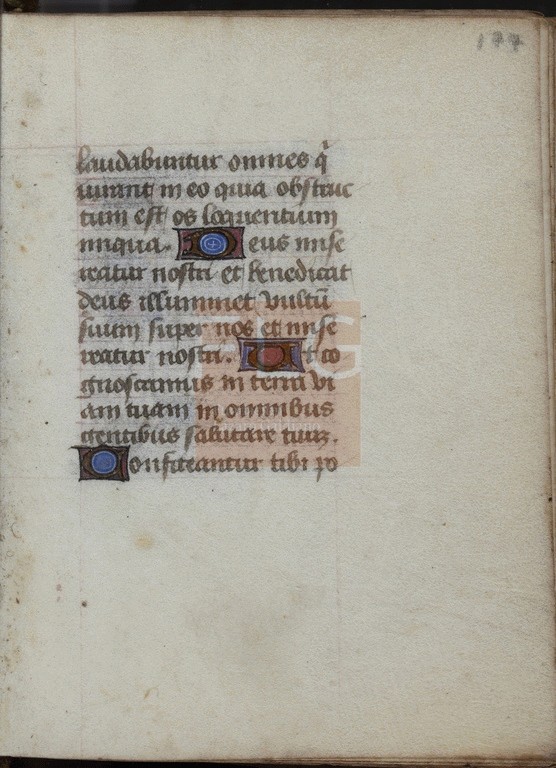 177
laudabuntur omnes q̇
iurant in eo quia obstruc
tum est os loquentium
iniqua. Deus mise
reatur nostri et benedicat
deus illuminet vultū
suum super nos et mise
reatur nostri. Ut co
gnoscamus in terra vi
am tuam in omnibus
gentibus salutare tuum.
Confiteantur tibi po